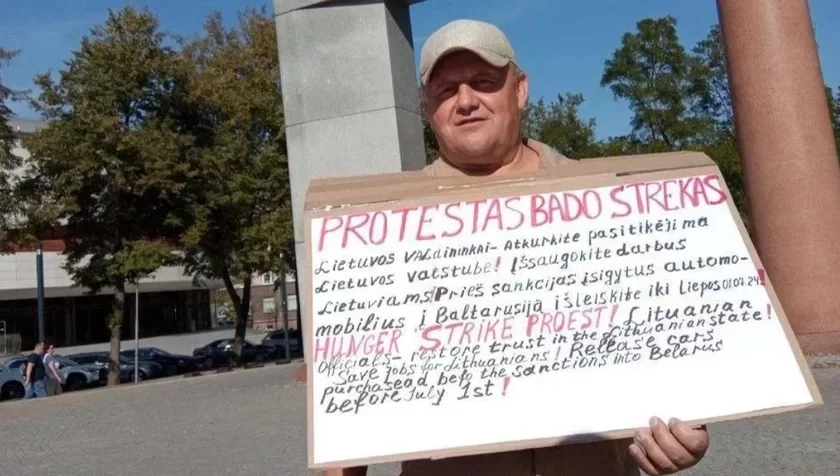 PROTESTAS BADO STREKAS
Lietuvos VALdininkai- Atkurkite pasitikėji ma
Lietuvos valstube! Išsaugokite darbus
Lietuviams! Prieš sankcijas įsigytus automo-
mobilius į Baltarusiją išleiskite iki Liepos 01.07.24!
HUNGER STRIKE PROEST! Lithuanian
Officials- restore trust in the Lithuanian state!
Save jobs for Lithuanians! Release cars
purchasead befo the sanctions into Belarus
before July 1st!